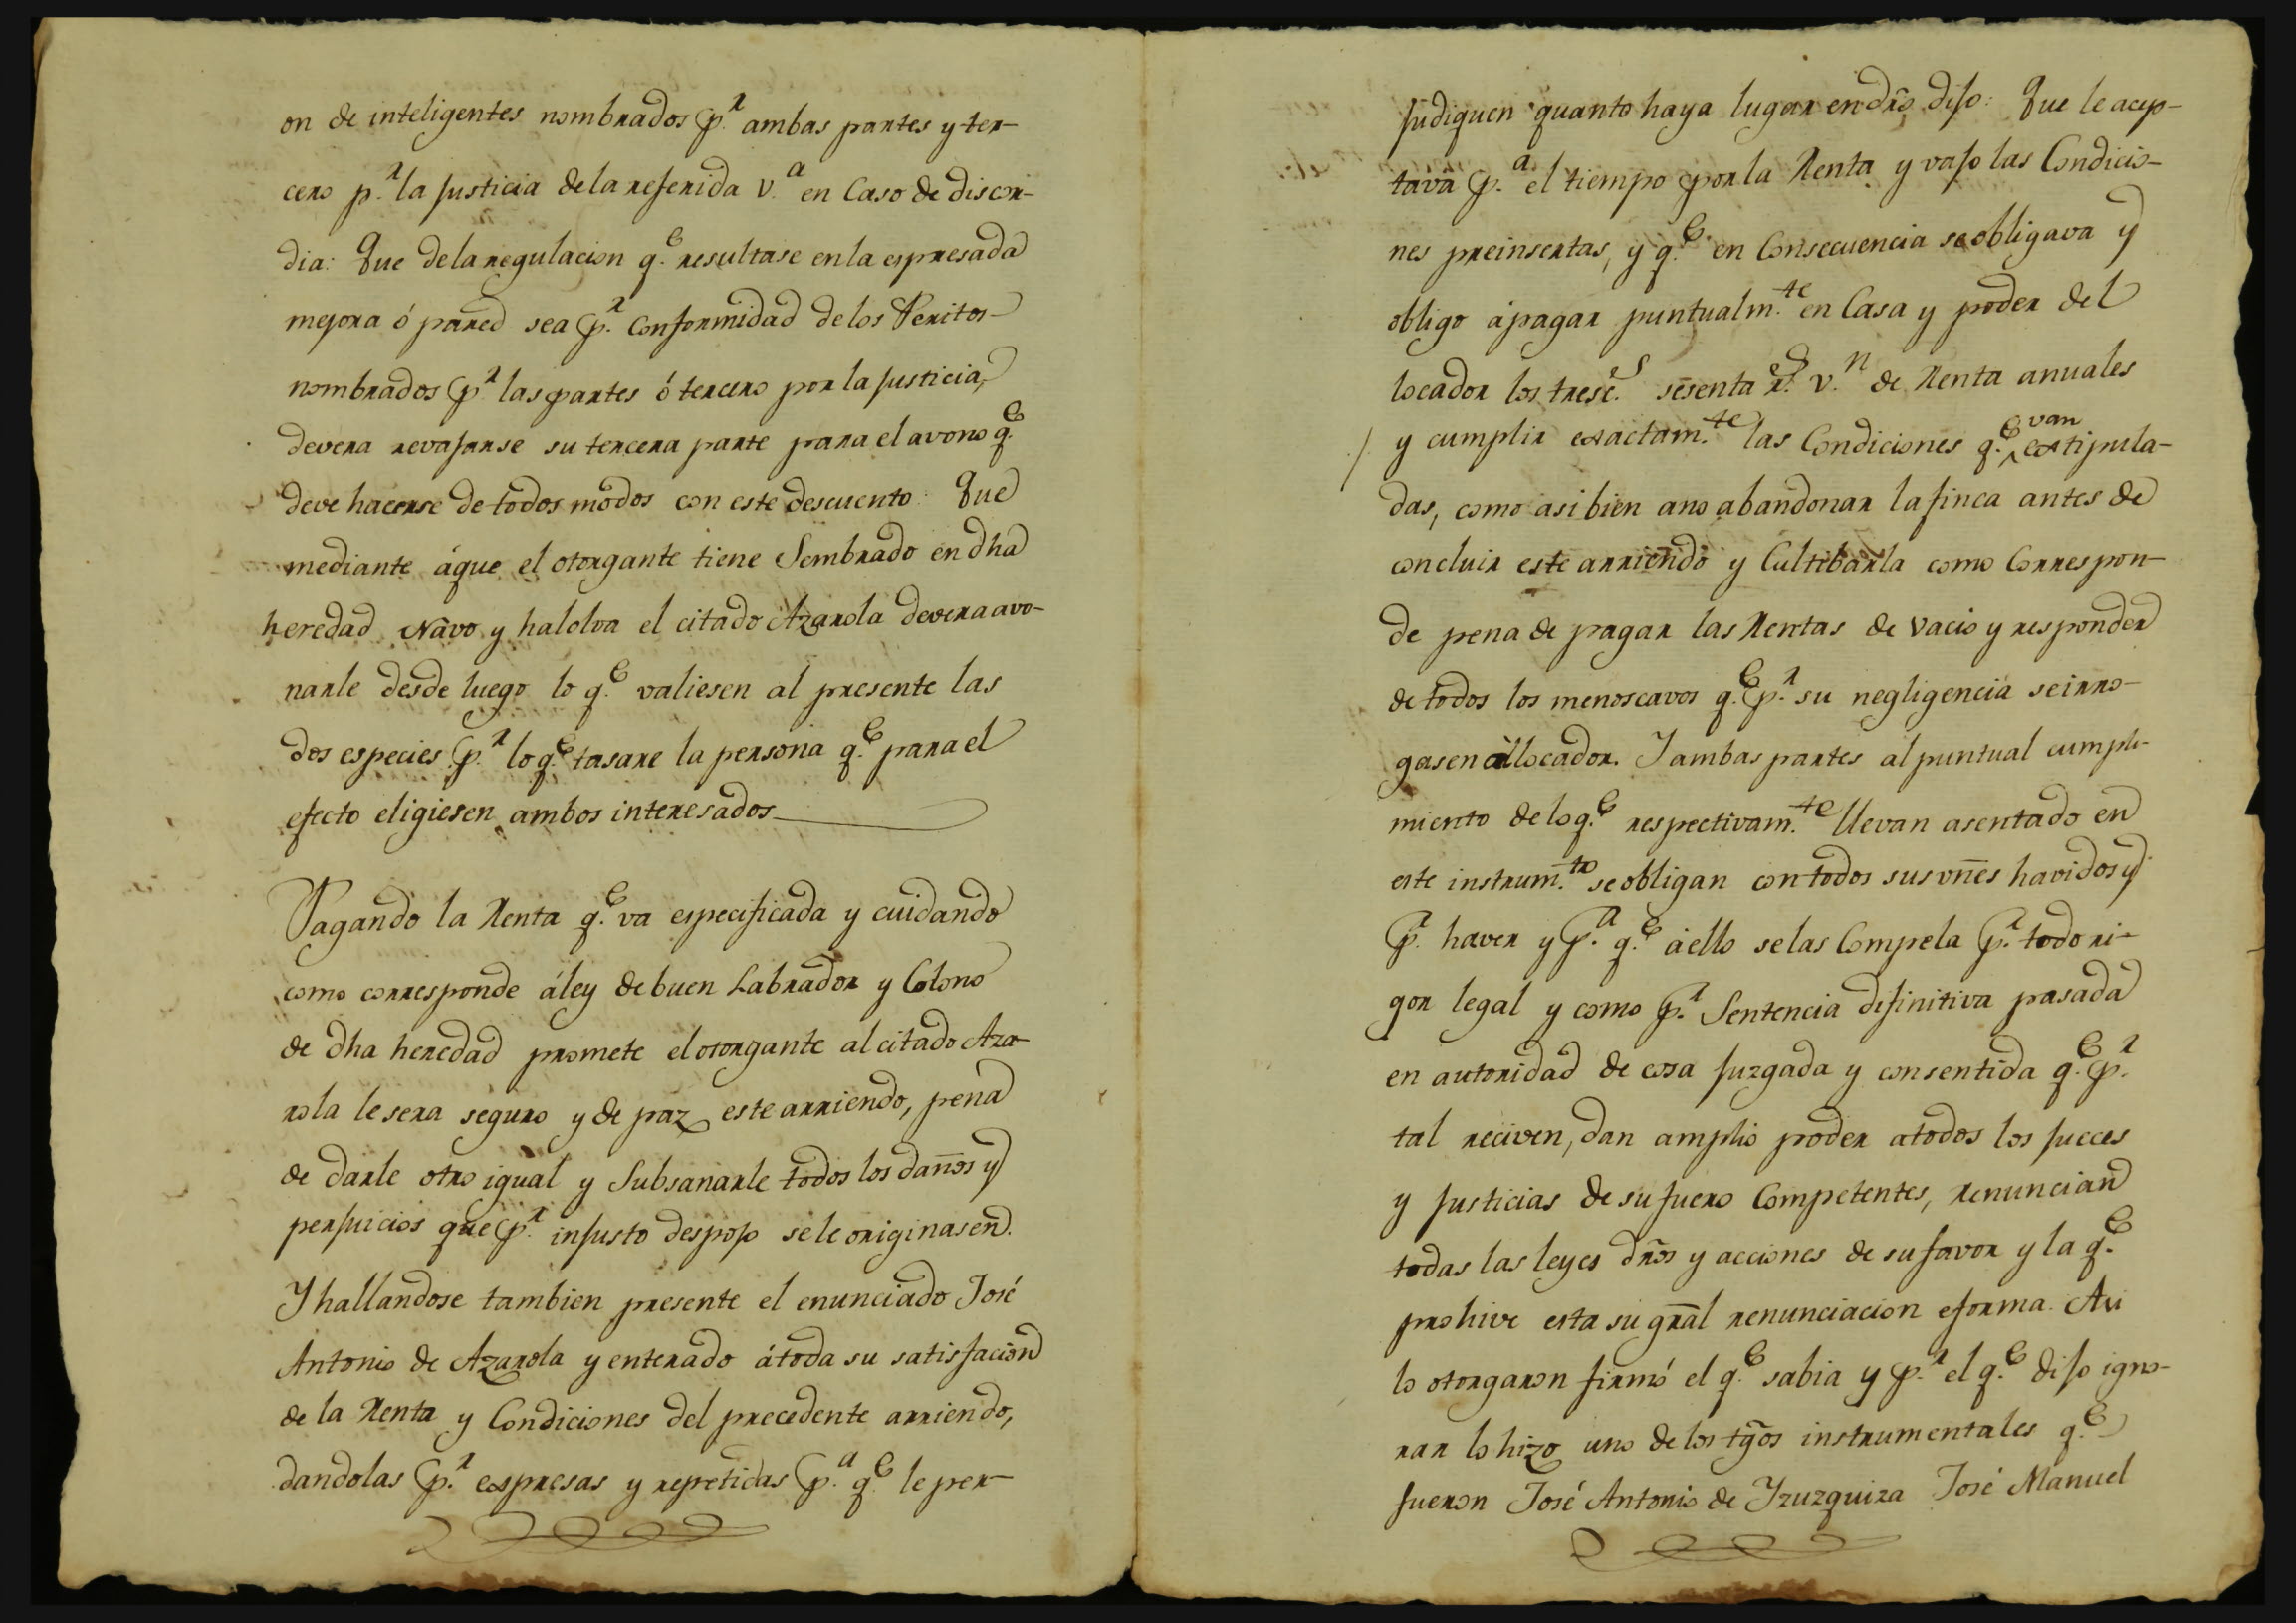 on de inteligentes nombrados p.r ambas partes y ter-
cero p.r la Justicia de la referida V.a en Caso de discor-
dia: Que de la regulacion q.e resultase en la espresada
mejora ó pared sea p.r conformidad de los Peritos
nombrados p.r las partes ó tercero por la Justicia,
devera revajarse su tercera parte para el avono q.e
deve hacerse de todos modos con este descuento: Que
mediante áque el otorgante tiene Sembrado en dha
heredad Navo y halolva el citado Azarola devera avo-
narle desde luego lo q.e valiesen al presente las
dos especies p.r lo q.e tasare la persona q.e para el
efecto eligiesen ambos interesados
Pagando la Renta q.e va especificada y cuidando
como corresponde áley de buen Labrador y Colono
de dha heredad promete el otorgante al citado Aza-
rola le sera seguro y de paz este arriendo, pena
de darle otro igual y Subsanarle todos los daños y
perjuicios que p.r injusto despojo se le originasen.
Y hallandose tambien presente el enunciado José
Antonio de Azarola y enterado átoda su satisfacion
de la Renta y Condiciones del precedente arriendo,
dandolas p.r espresas y repetidas p.a q.e le per-
judiquen quanto haya lugar en dro dijo: Que le acep-
tava p.a el tiempo por la Renta y vajo las Condicio-
nes preinsertas, y q.e en Consecuencia se obligava y
obligo ápagar puntualm.te en Casa y poder del
locador los tresc.s sesenta r.s v.n de Renta anuales
y cumplir exactam.te las Condiciones q.e van extipula-
das, como asi bien ano abandonar la finca antes de
concluir este arriendo y Cultibarla como Correspon-
de pena de pagar las Rentas de vacio y responder
de todos los menoscavos q.e p.r su negligencia se irro-
gasen al locador. Y ambas partes al puntual cumpli-
miento de lo q.e respectivam.te llevan asentado en
este instrum.to se obligan con todos sus vnes havidos y
p.r haver y p.a q.e áello se las Compela p.r todo ri-
gor legal y como p.r Sentencia difinitiva pasada
en autoridad de cosa Juzgada y consentida q.e p.r
tal reciven, dan amplio poder atodos los Jueces
y Justicias de su fuero Competentes, renuncian
todas las leyes dros y acciones de su favor y la q.e
prohive esta su gral renunciacion eforma. Asi
lo otorgaron firmó el q.e sabia y p.r el q.e dijo igno-
rar lo hizo uno de los tgos instrumentales q.e
fueron José Antonio de Yzuzquiza José Manuel